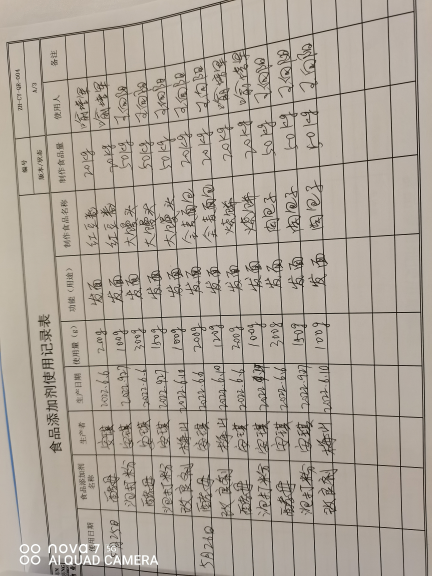 编号 ZH-CY-QR-004
版本/状态 A/3
食品添加剂使用记录表
使用日期 食品添加剂名称 生产者 生产日期 使用量(g) 功能(用途) 制作食品名称 制作食品量 使用人 备注
5月25日 酵母 安琪 2022.6.6 200g 发面 红豆卷 20kg
泡打粉 安琪 2022.9.27 100g 发面 红豆卷 20kg
酵母 安琪 2022.6.6 300g 发面 大馒头 50kg 王向阳
泡打粉 安琪 2022.9.27 150g 发面 大馒头 50kg 王向阳
改良剂 梅山 2022.6.10 100g 发面 大馒头 50kg 王向阳
5月26日 酵母 安琪 2022.6.6 200g 发面 全麦面包 20kg 王向阳
改良剂 梅山 2022.6.10 120g 发面 全麦面包 20kg 王向阳
酵母 安琪 2022.6.6 200g 发面 烧饼 20kg
泡打粉 安琪 100g 发面 烧饼 20kg
酵母 安琪 2022.6.6 300g 发面 肉包子 50kg 王向阳
泡打粉 安琪 2022.9.27 150g 发面 肉包子 50kg 王向阳
改良剂 梅山 2022.6.10 100g 发面 肉包子 50kg 王向阳
nova 7
AI QUAD CAMERA